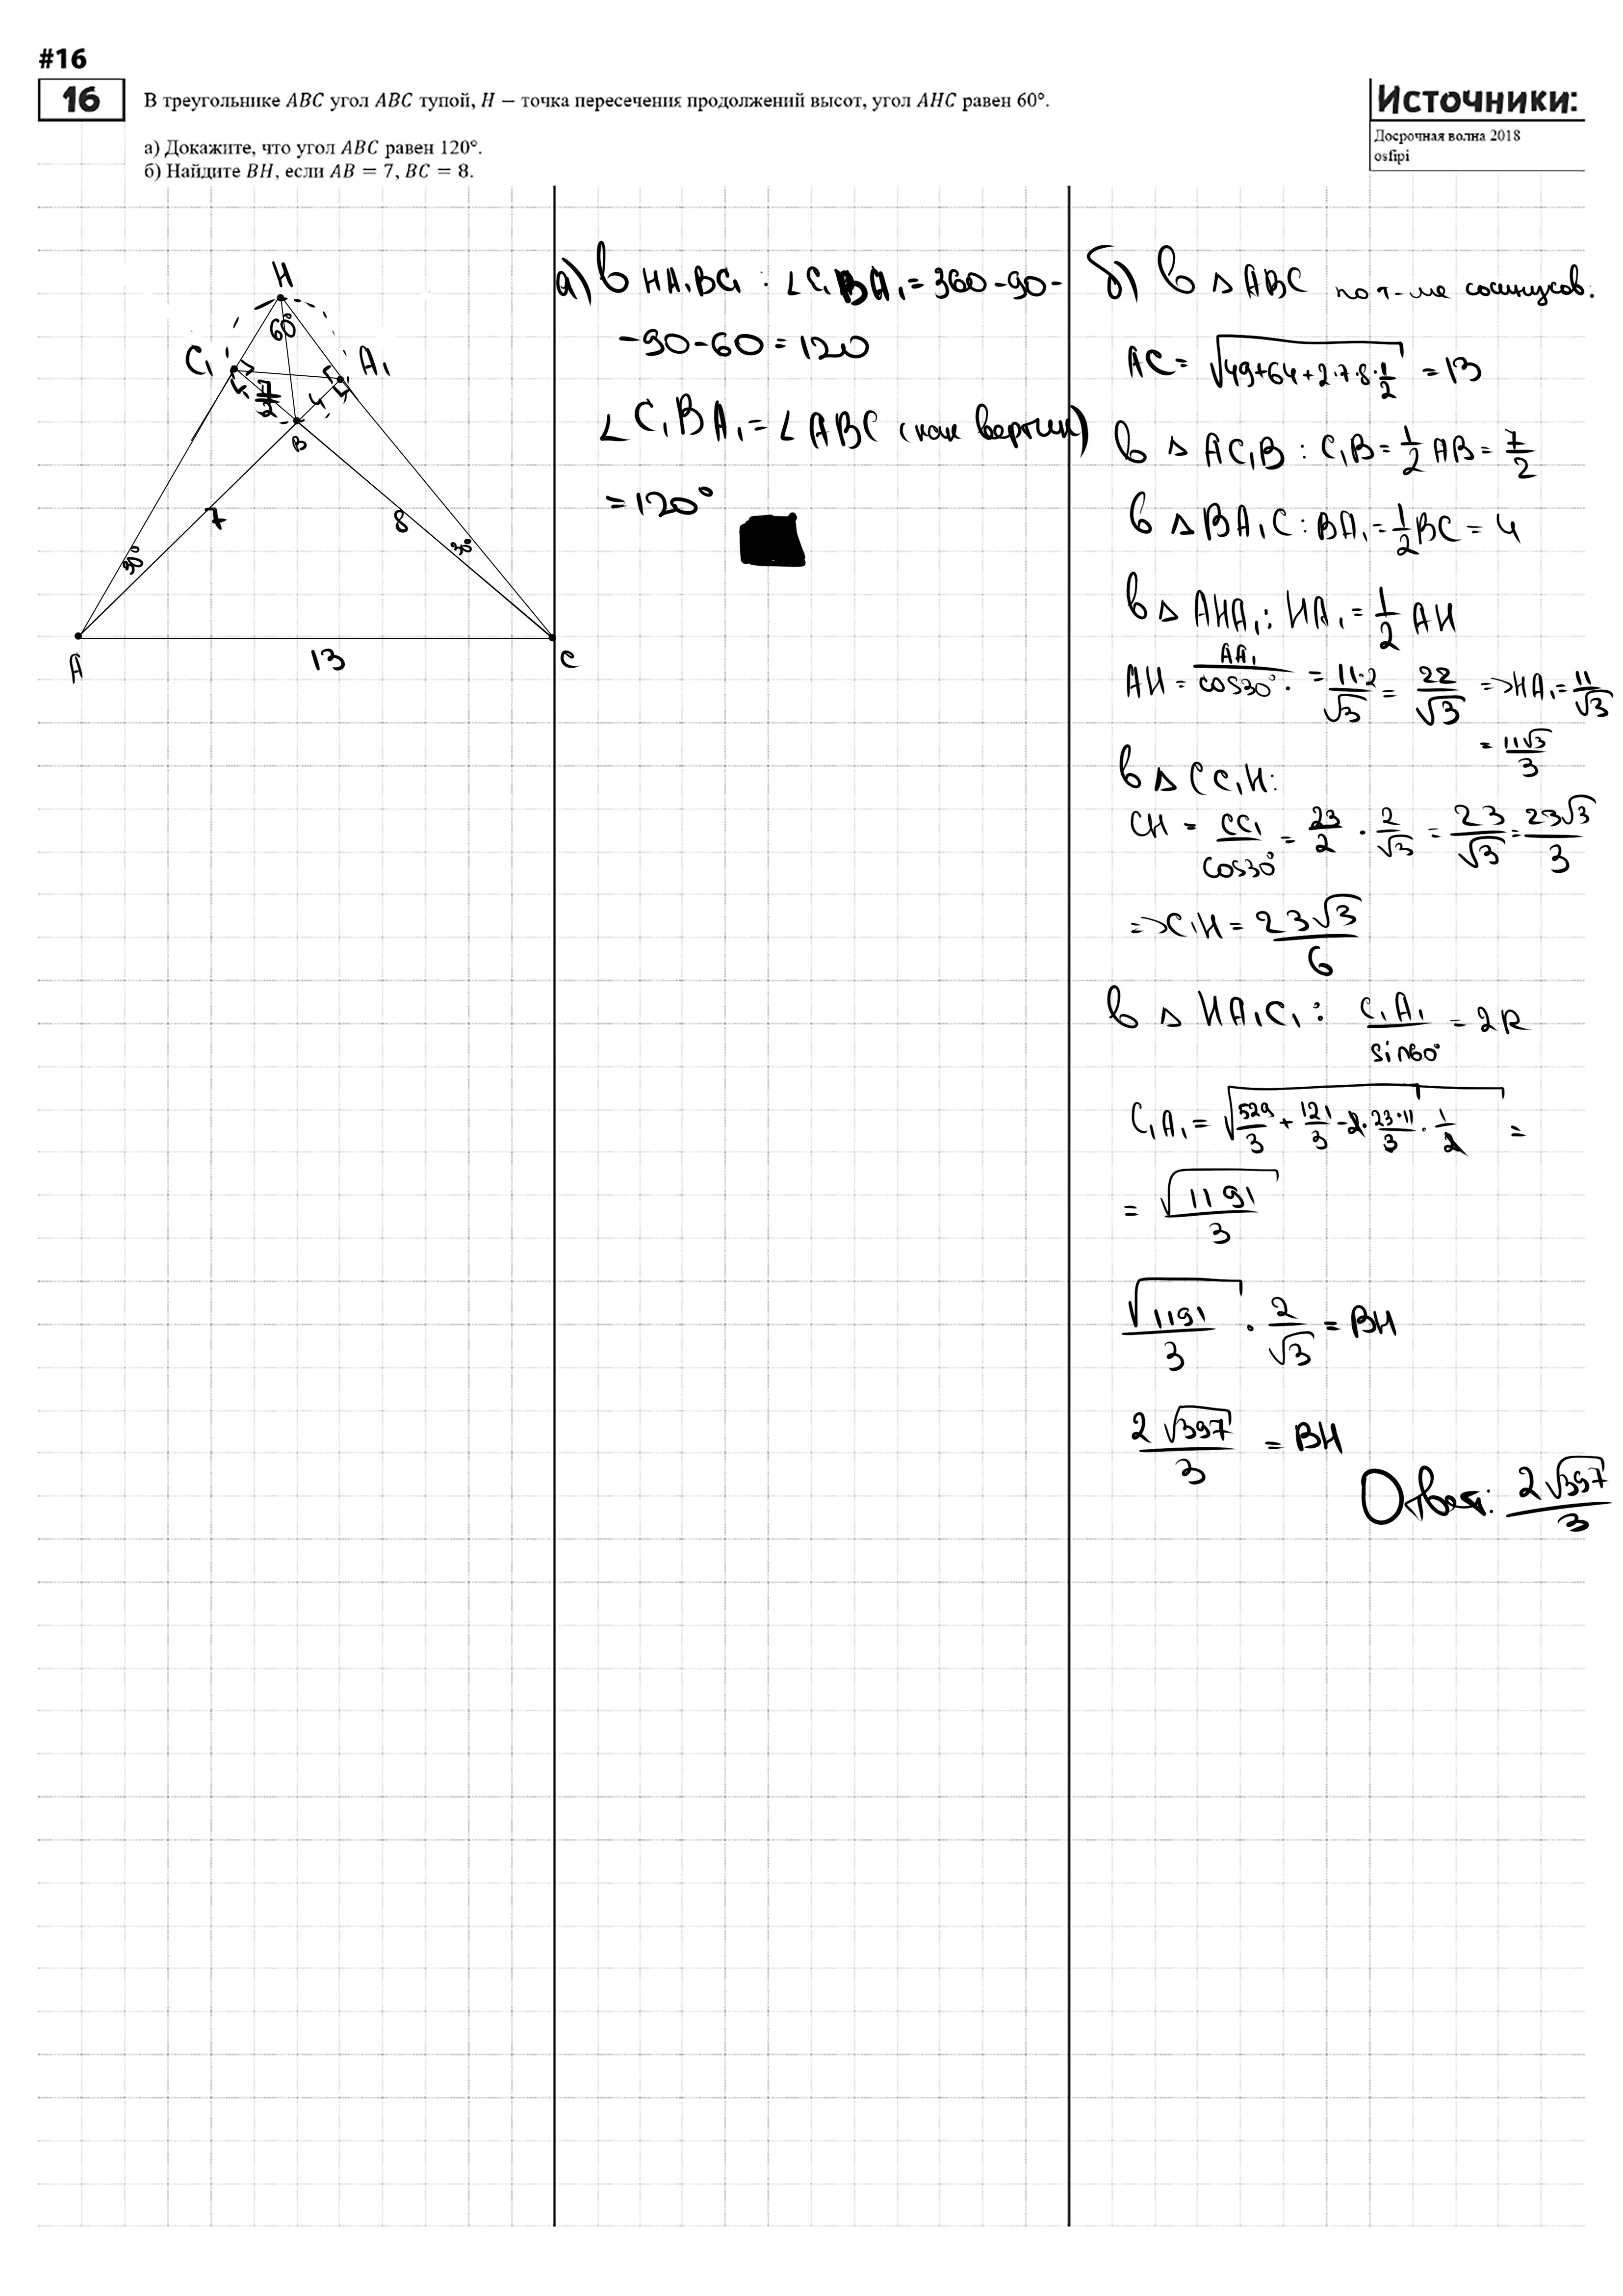 #16
16
В треугольнике ABC угол ABC тупой, H – точка пересечения продолжений высот, угол AHC равен 60°.
а) Докажите, что угол ABC равен 120°.
б) Найдите BH, если AB = 7, BC = 8.
Источники:
Досрочная волна 2018
osfipi
H
60°
C₁
A₁
7/2
4
B
7
8
30°
30°
A
13
C
а) В HA₁BC₁ : ∠C₁BA₁ = 360-90-
-90-60 = 120
∠C₁BA₁ = ∠ABC (как вертик)
= 120°
б) В △ABC по т-ме косинусов:
AC = √(49+64+2·7·8·1/2) = 13
В △ AC₁B : C₁B = 1/2 AB = 7/2
В △ BA₁C : BA₁ = 1/2 BC = 4
В △ AHA₁ : HA₁ = 1/2 AH
AH = AA₁/cos30° · = 11·2/√3 = 22/√3 => HA₁ = 11/√3
= 11√3/3
В △ CC₁H:
CH = CC₁/cos30° = 23/2 · 2/√3 = 23/√3 = 23√3/3
=> C₁H = 23√3/6
В △ HA₁C₁ : C₁A₁/sin60° = 2R
C₁A₁ = √(529/3 + 121/3 - 2·23·11/3 · 1/2) =
= √1191/3
√1191/3 · 2/√3 = BH
2√397/3 = BH
Ответ: 2√397/3